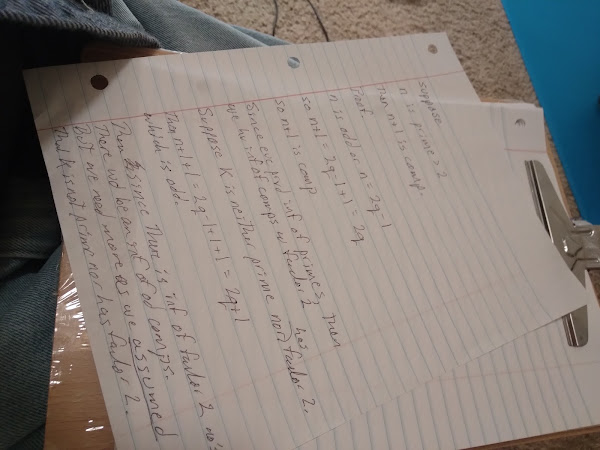 suppose
n is prime > 2
Then n+1 is comp.
Proof
n is odd or n = 2q-1
so n+1 = 2q-1+1 = 2q
so n+1 is comp
Since inf of primes, then
we hv inf of comps w. factor 2.
Suppose K is neither prime nor has factor 2.
Then n+1+1 = 2q-1+1+1 = 2q+1
which is odd.
Then since There is inf of factor 2 no's
There wd be an inf of od comps.
But we need more as we assumed
That K is not prime nor has factor 2.